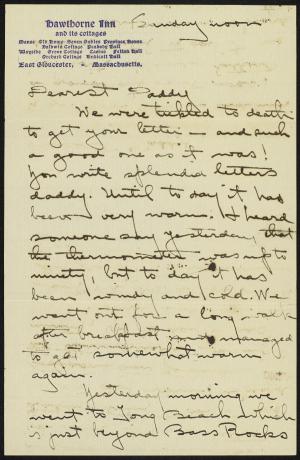 Hawthorne Inn
and its cottages
Manse Old Home Seven Gables Province House
Baldwin Cottage Peabody Hall
Wayside Grove Cottage Casino Felton Hall
Orchard Cottage Endicott Hall
East Gloucester, Massachusetts.
Sunday noon
Dearest Daddy
We were tickled to death
to get your letter – and such
a good one as it was!
You write splendid letters
daddy. Until to day it has
been very warm. I heard
someone say yesterday that
the thermometer was up to
ninety, but to day it has
been windy and cold. We
went out for a long walk
after breakfast and managed
to get somewhat warm
again.
Yesterday morning we
went to Long Beach which
is just beyond Bass Rocks